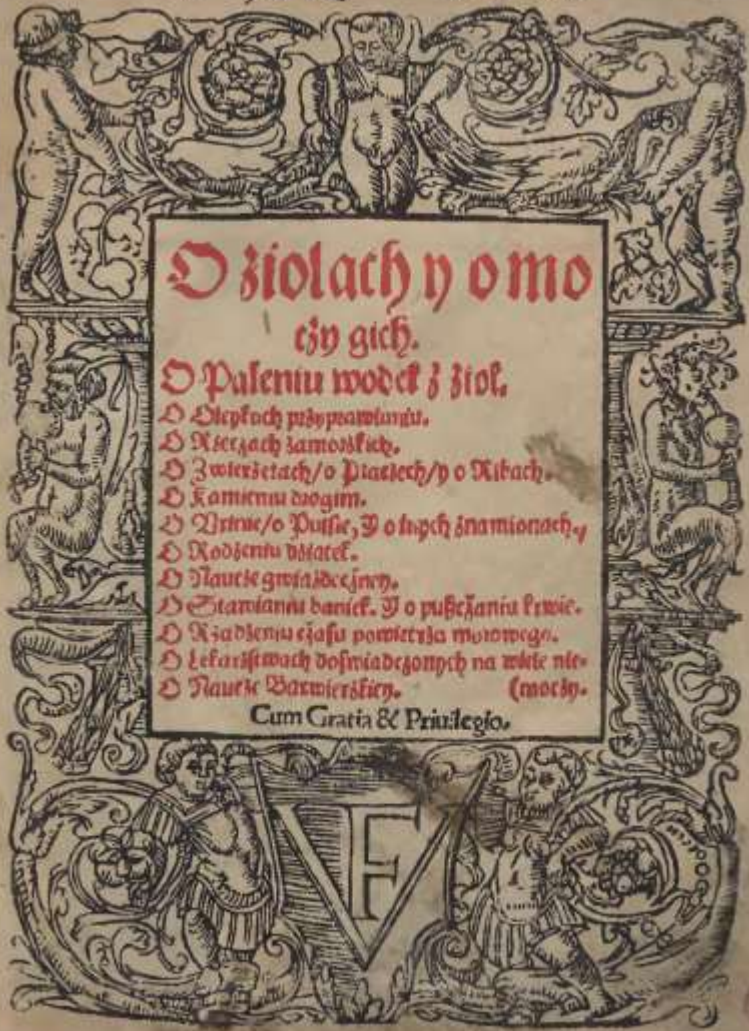 O ziolach y o mo
czy gich.
O Paleniu wodek z ziol.
O Oleykoch przyprawianiu.
O Rzeczach zamorskich.
O Zwierzetach/o Ptacech/y o Ribach.
O Kamieniu drogim.
O Urinie/o Pulsie, Y o inych znamionach.
O Rodzeniu dziatek.
O Nautze gwiazdeczney.
O Stawianiu baniek. Y o pußczaniu krwie.
O Rządzeniu czasu powietrza morowego.
O Lekarstwach doswiadczonych na wiele nie-
O Nautze Barwierskiey. (moczy.
Cum Gratia & Priuilegio.
VF